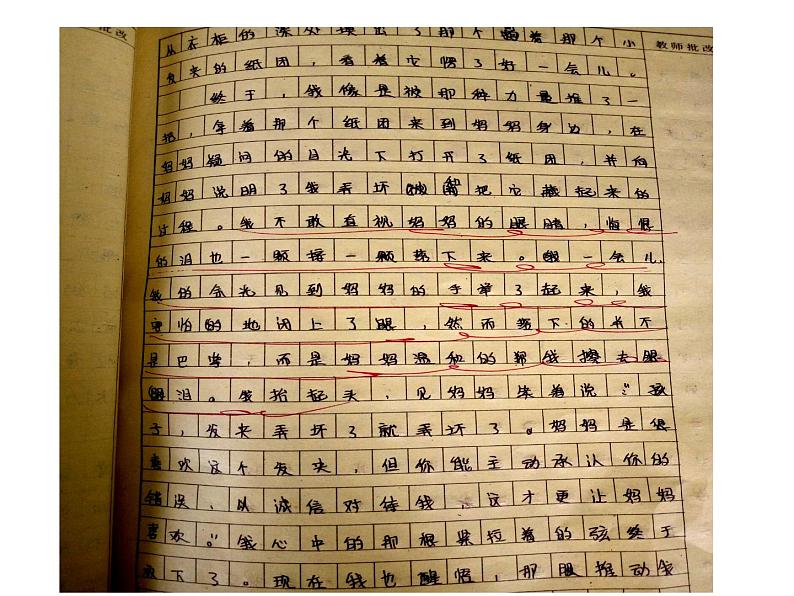 批改
教师批改
从衣柜的深处摸出了那个藏着那个小
发夹的纸团，看着它愣了好一会儿。
终于，我像是被那种力量推了一
把，拿着那个纸团来到妈妈身边，在
妈妈疑问的目光下打开了纸团，并向
妈妈说明了我弄坏和把它藏起来的
过程。我不敢直视妈妈的眼睛，悔恨
的泪也一颗接一颗落下来。一会儿，
我的余光见到妈妈的手举了起来，我
害怕的地闭上了眼，然而落下的并不
是巴掌，而是妈妈温和的帮我擦去眼
眼泪。我抬起头，见妈妈笑着说：“孩
子，发夹弄坏了就弄坏了。妈妈是很
喜欢这个发夹，但你能主动承认你的
错误，以诚信对待我，这才更让妈妈
喜欢。”我心中的那根紧拉着的弦终于
放下了。现在我也醒悟，那股推动我